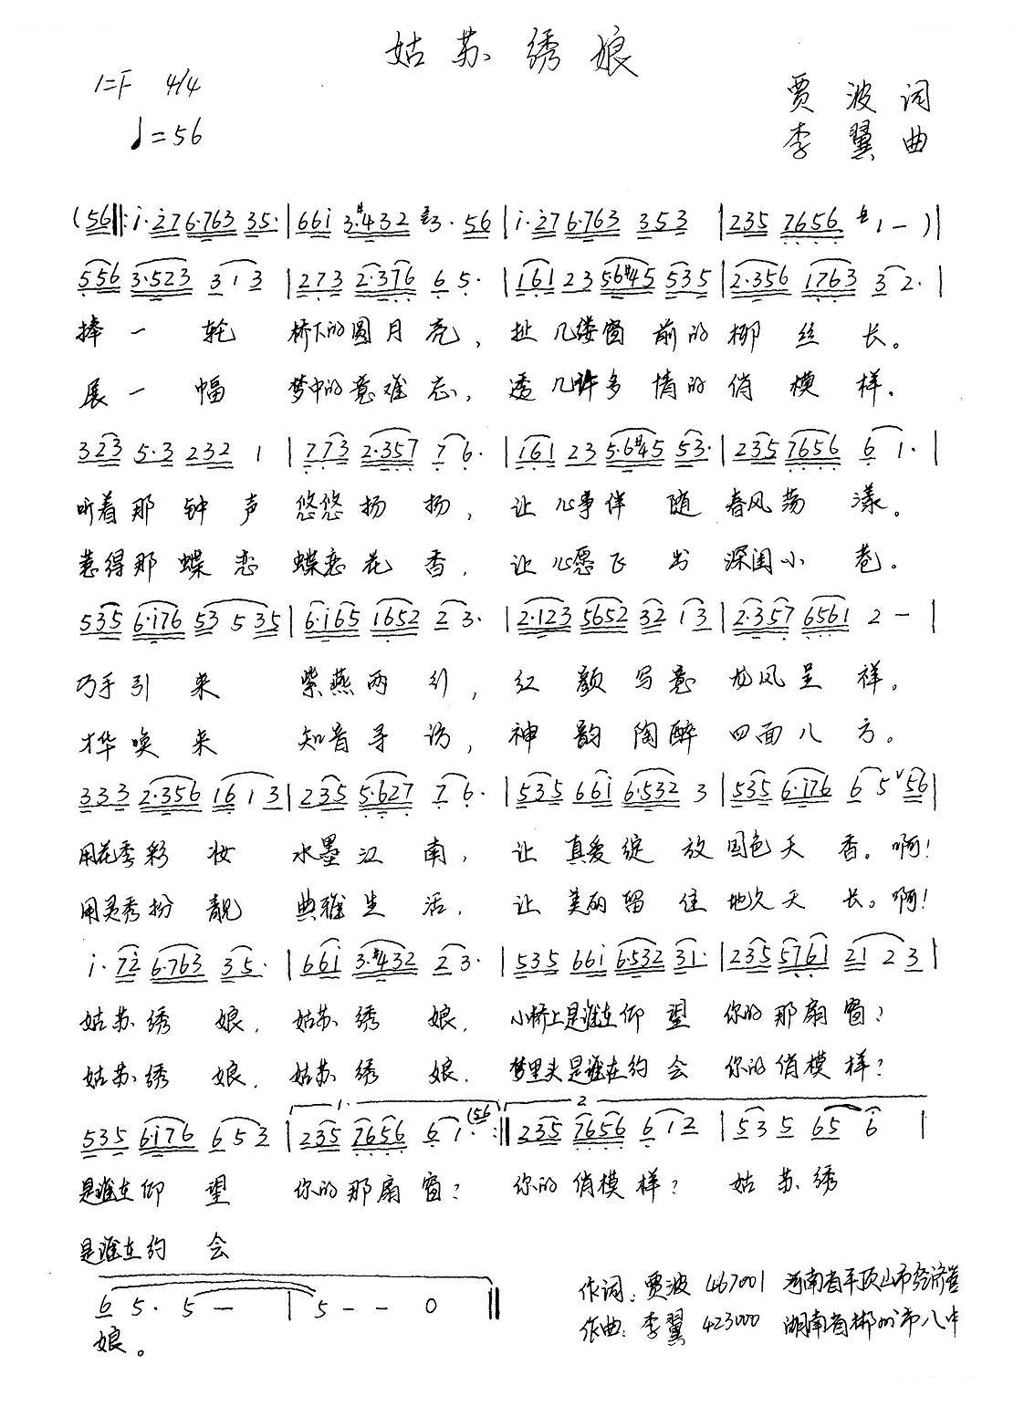 姑苏绣娘
1=F 4/4
♩=56
贾波词
李翼曲
(56‖: i·276·763 35· | 66i 3·#432 3· 56 | i·276·763 353 | 235 7656 1 - ) |
556 3·523 313 | 273 2·376 65· | 161 23 56#45 535 | 2·356 1763 32· |
捧一轮 桥下的圆月亮，扯几缕窗前的柳丝长。
展一幅 梦中的意难忘，透几许多情的俏模样。
323 5·3 232 1 | 773 2·357 76· | 161 23 5·6#45 53· | 235 7656 61· |
听着那钟声 悠悠扬扬，让心事伴随 春风荡漾。
惹得那蝶恋 蝶恋花香，让心愿飞出 深闺小巷。
535 6·i76 53 535 | 6·i65 1652 23· | 2·123 5652 32 13 | 2·357 6561 2 - |
巧手引来 紫燕两行，红颜写意 龙凤呈祥。
才华唤来 知音寻访，神韵陶醉 四面八方。
333 2·356 16 13 | 235 5·627 76· | 535 66i 6·532 3 | 535 6·i76 65 56 |
用花秀彩妆 水墨江南，让真爱绽放 国色天香。啊！
用灵秀扮靓 典雅生活，让美丽留住 地久天长。啊！
i· 72 6·763 35· | 66i 3·#432 23· | 535 66i 6·532 31· | 235 5761 21 23 |
姑苏绣娘，姑苏绣娘，小桥上是谁在仰望 你的那扇窗？
姑苏绣娘，姑苏绣娘，梦里头是谁在约会 你的俏模样？
1. 2.
535 6i76 653 | 235 7656 61· (56 :‖ 235 7656 612 | 535 65 6 |
是谁在仰望 你的那扇窗？你的俏模样？姑苏绣
是谁在约会
65· 5 - | 5 - - 0 ‖
娘。
作词：贾波 467001 河南省平顶山市经济营
作曲：李翼 423000 湖南省郴州市八中